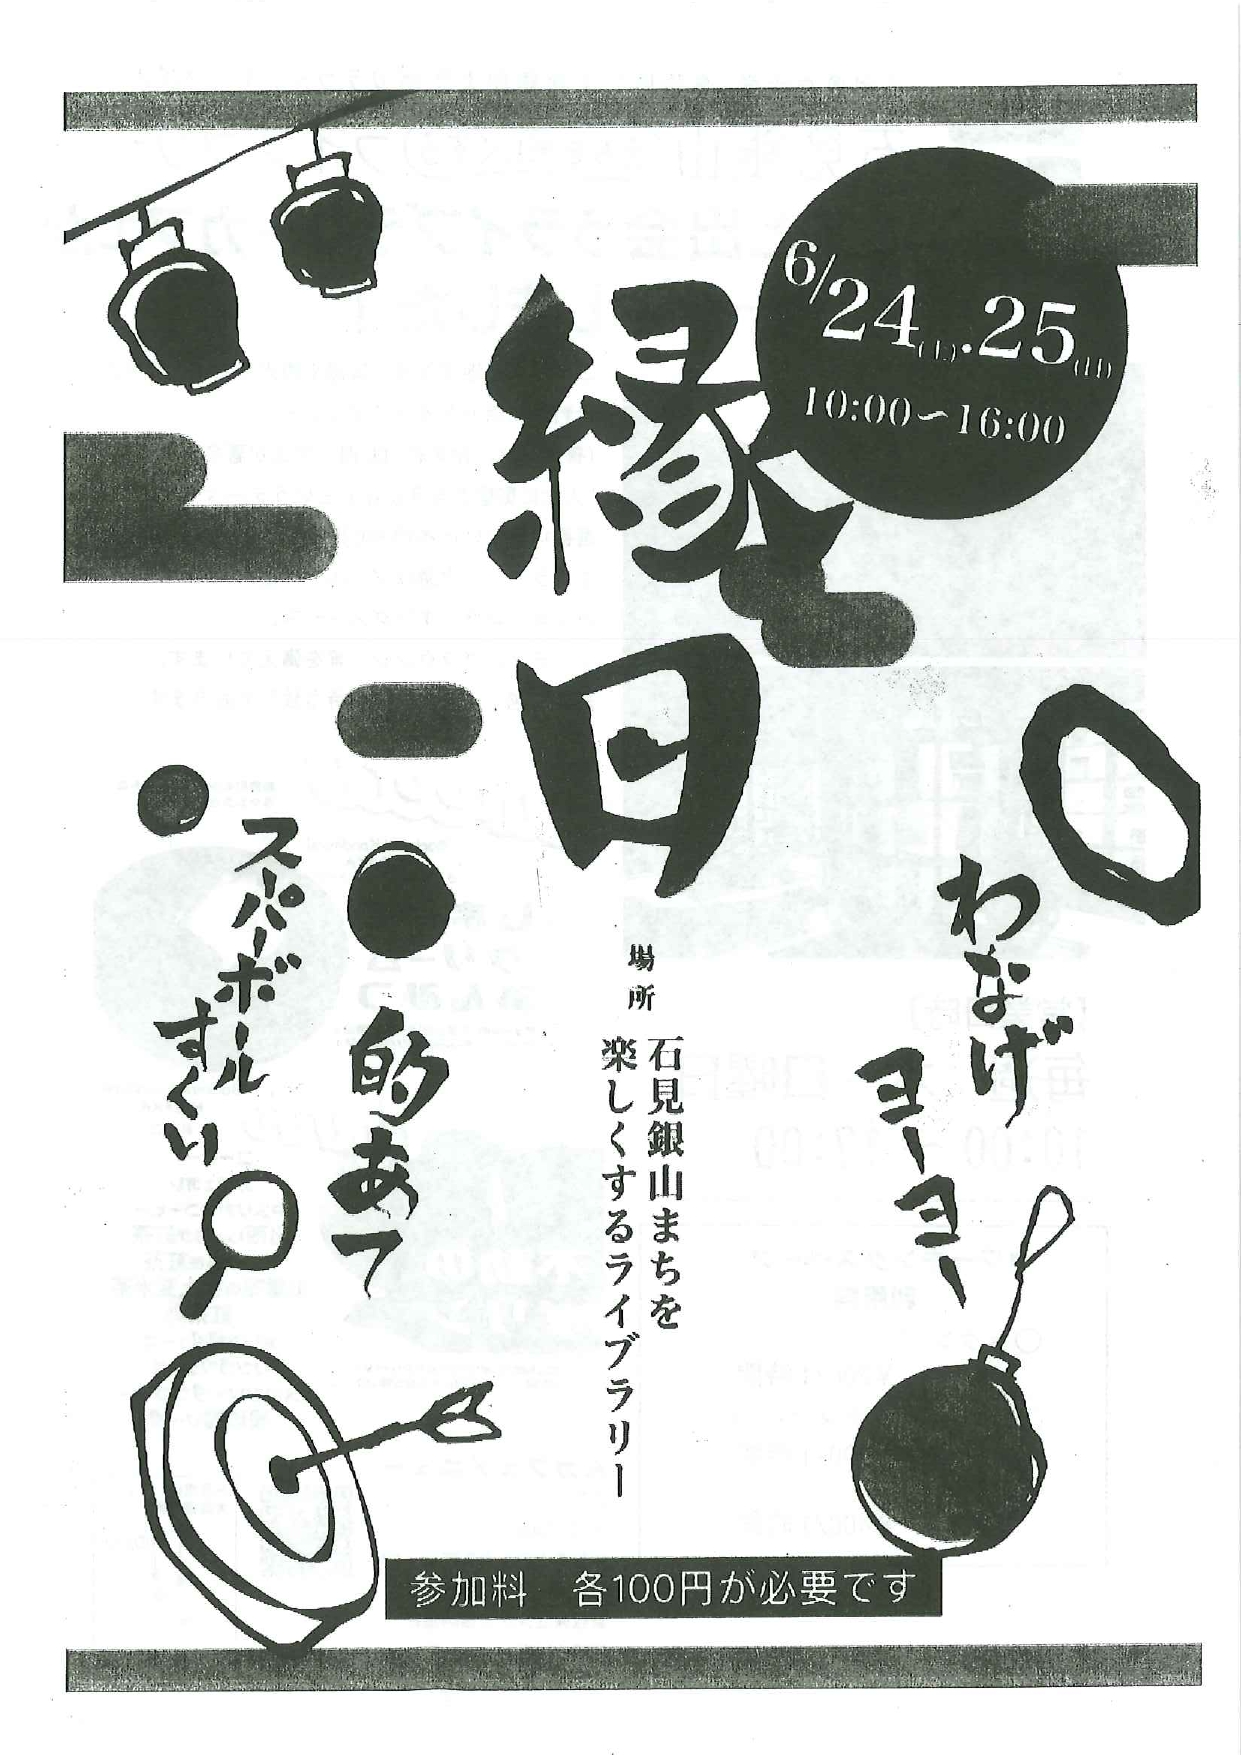 6/24(土).25(日)
10:00〜16:00
縁日
わなげ
ヨーヨー
場所
石見銀山まちを
楽しくするライブラリー
的あて
スーパーボール
すくい
参加料　各100円が必要です